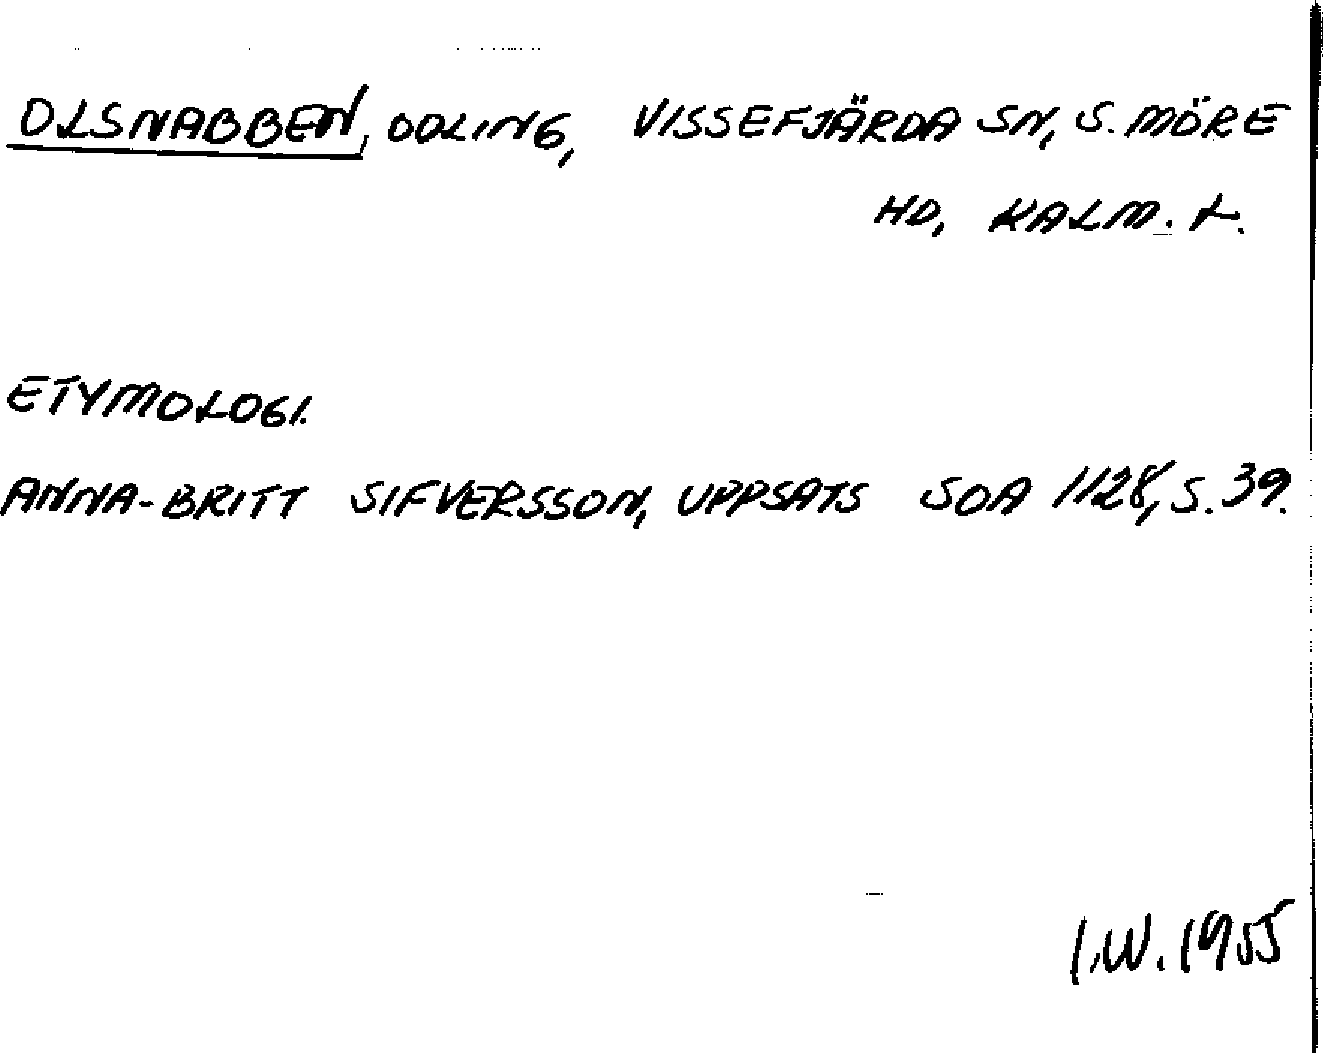 OLSNABBEN, ODLING, VISSEFJÄRDA SN, S. MÖRE
HD, KALM. L.
ETYMOLOGI.
ANNA-BRITT SIFVERSSON, UPPSATS SOA 1128, S. 39.
I.W. 1955